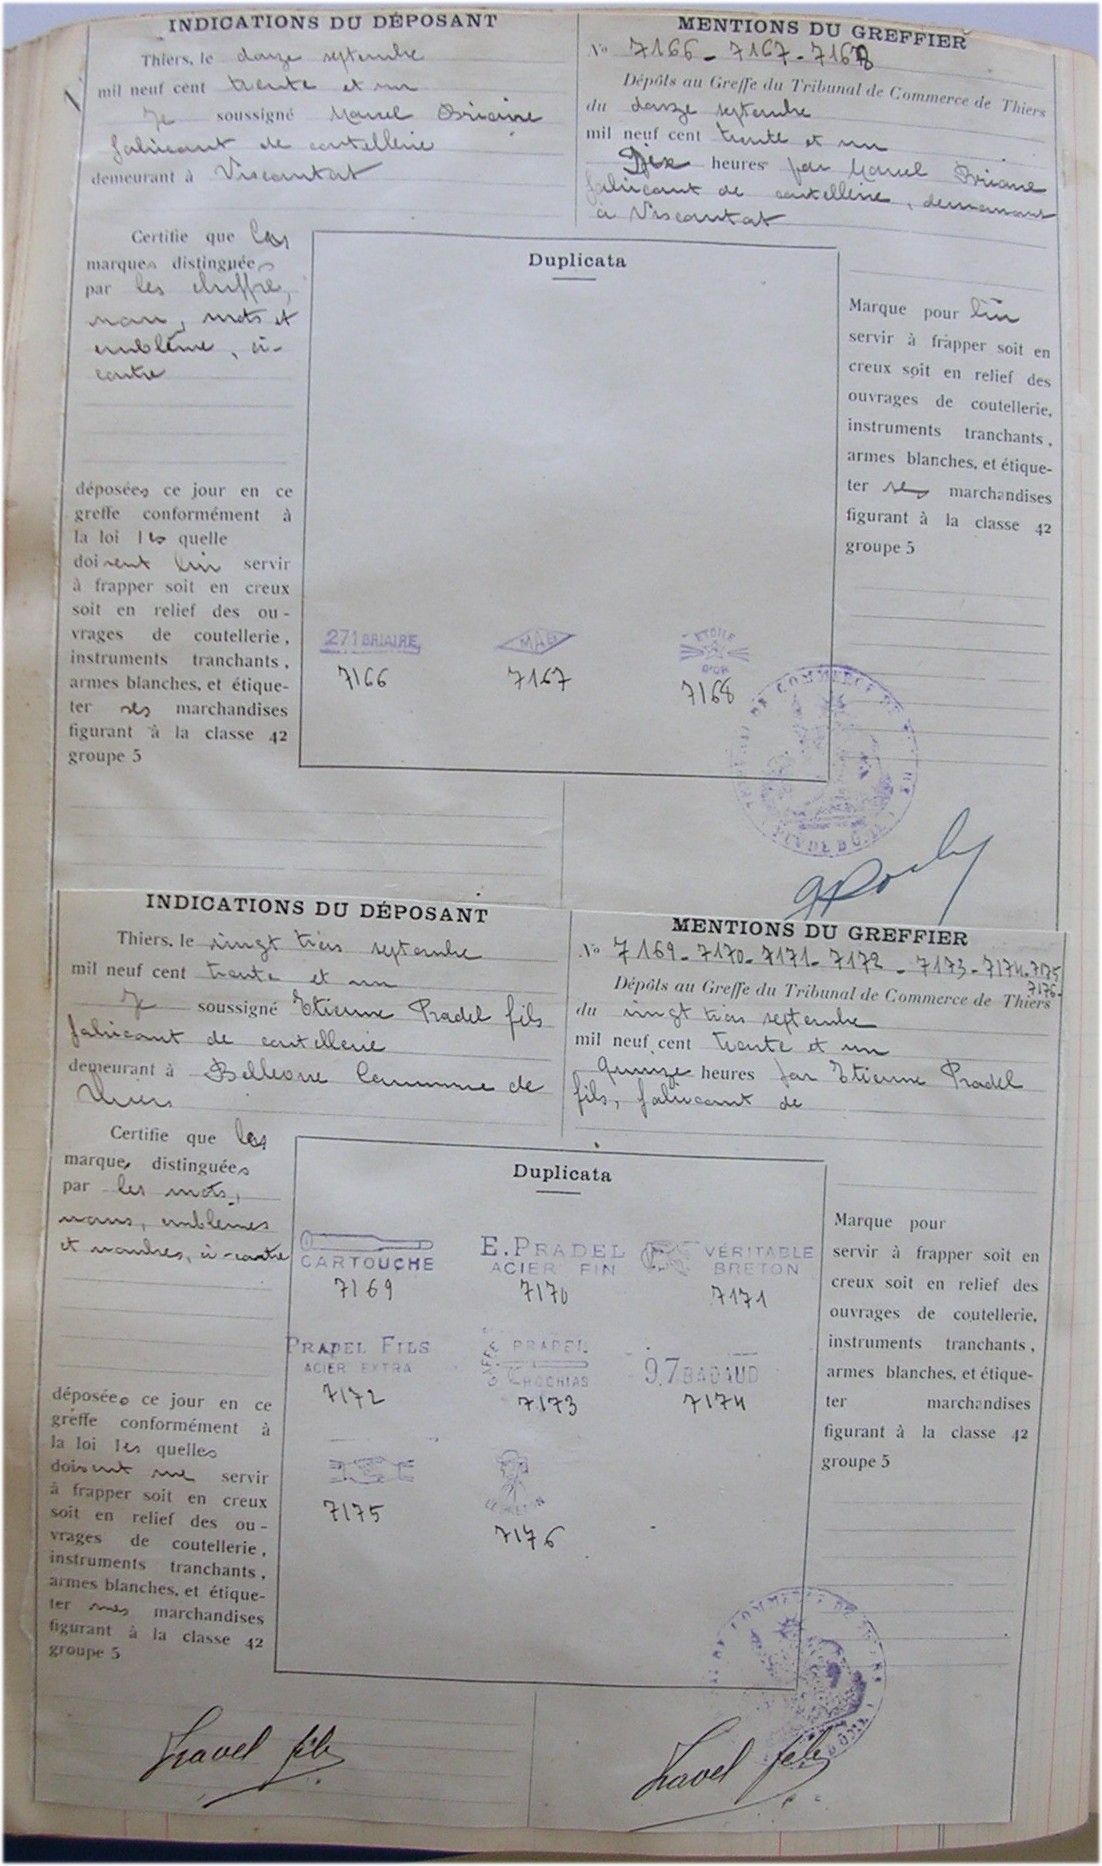 INDICATIONS DU DÉPOSANT
Thiers, le douze septembre
mil neuf cent trente et un
Je soussigné Marcel Briaire
fabricant de coutellerie
demeurant à Viscomtat
Certifie que les
marques distinguées
par les chiffre,
nom, mots et
emblème, ci-
contre
déposées ce jour en ce
greffe conformément à
la loi les quelle
doivent lui servir
à frapper soit en creux
soit en relief des ou-
vrages de coutellerie,
instruments tranchants,
armes blanches, et étique-
ter ses marchandises
figurant à la classe 42
groupe 5
MENTIONS DU GREFFIER
No 7166-7167-7168
Dépôts au Greffe du Tribunal de Commerce de Thiers
du douze septembre
mil neuf cent trente et un
Dix heures par Marcel Briaire
fabricant de coutellerie, demeurant
à Viscomtat
Duplicata
271 BRIAIRE
7166
7167
ETOILE
D'OR
7168
Marque pour lui
servir à frapper soit en
creux soit en relief des
ouvrages de coutellerie,
instruments tranchants,
armes blanches, et étique-
ter ses marchandises
figurant à la classe 42
groupe 5
INDICATIONS DU DÉPOSANT
Thiers, le vingt trois septembre
mil neuf cent trente et un
Je soussigné Etienne Pradel fils
fabricant de coutellerie
demeurant à Commune de
Thiers
Certifie que les
marque, distinguées
par les mots,
noms, emblèmes
et nombres, ci-contre
déposées ce jour en ce
greffe conformément à
la loi les quelles
doivent me servir
à frapper soit en creux
soit en relief des ou-
vrages de coutellerie,
instruments tranchants,
armes blanches, et étique-
ter mes marchandises
figurant à la classe 42
groupe 5
MENTIONS DU GREFFIER
No 7169-7170-7171-7172-7173-7174-7175
7176-
Dépôts au Greffe du Tribunal de Commerce de Thiers
du vingt trois septembre
mil neuf cent trente et un
Quinze heures par Etienne Pradel
fils, fabricant de
Duplicata
CARTOUCHE
7169
E. PRADEL
ACIER FIN
7170
VÉRITABLE
BRETON
7171
PRADEL FILS
ACIER EXTRA
7172
PRADEL
7173
97 BAGAUD
7174
7175
7176
Marque pour
servir à frapper soit en
creux soit en relief des
ouvrages de coutellerie,
instruments tranchants,
armes blanches, et étique-
ter marchandises
figurant à la classe 42
groupe 5